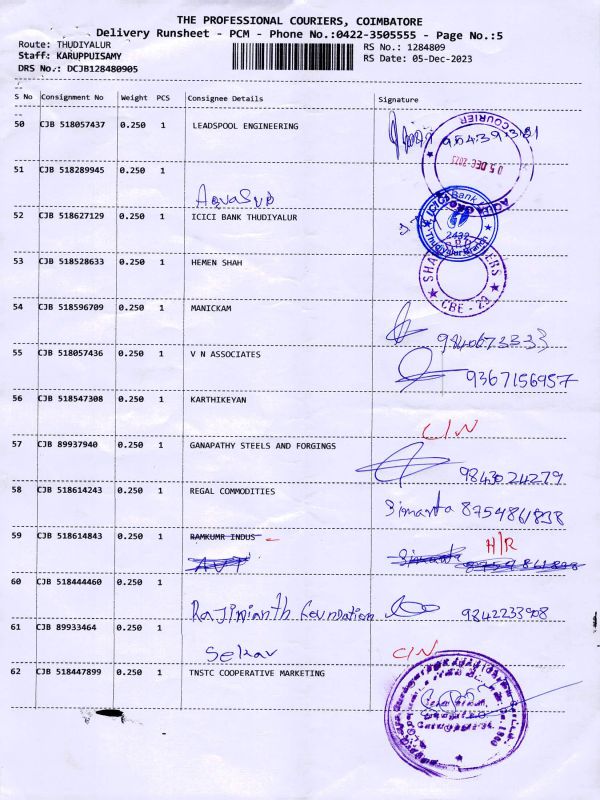 THE PROFESSIONAL COURIERS, COIMBATORE
Delivery Runsheet - PCM - Phone No.:0422-3505555 - Page No.:5
Route: THUDIYALUR
RS No.: 1284809
Staff: KARUPPUISAMY
RS Date: 05-Dec-2023
DRS No.: DCJB128480905
S No Consignment No Weight PCS Consignee Details Signature
50 CJB 518057437 0.250 1 LEADSPOOL ENGINEERING
COURIER
05 DEC 2023
51 CJB 518289945 0.250 1
AquaSub
52 CJB 518627129 0.250 1 ICICI BANK THUDIYALUR
ICICI Bank
2432
Thudiyalur Branch
53 CJB 518528633 0.250 1 HEMEN SHAH
CBE - 29
54 CJB 518596709 0.250 1 MANICKAM
9840673333
55 CJB 518057436 0.250 1 V N ASSOCIATES
9367156957
56 CJB 518547308 0.250 1 KARTHIKEYAN
C/N
57 CJB 89937940 0.250 1 GANAPATHY STEELS AND FORGINGS
9843024279
58 CJB 518614243 0.250 1 REGAL COMMODITIES
Simanta 8754861838
59 CJB 518614843 0.250 1 RAMKUMR INDUS
H/R
AVT Simanta 8754861838
60 CJB 518444460 0.250 1
Rajinianth foundation 9842233908
61 CJB 89933464 0.250 1
Sekar C/N
62 CJB 518447899 0.250 1 TNSTC COOPERATIVE MARKETING